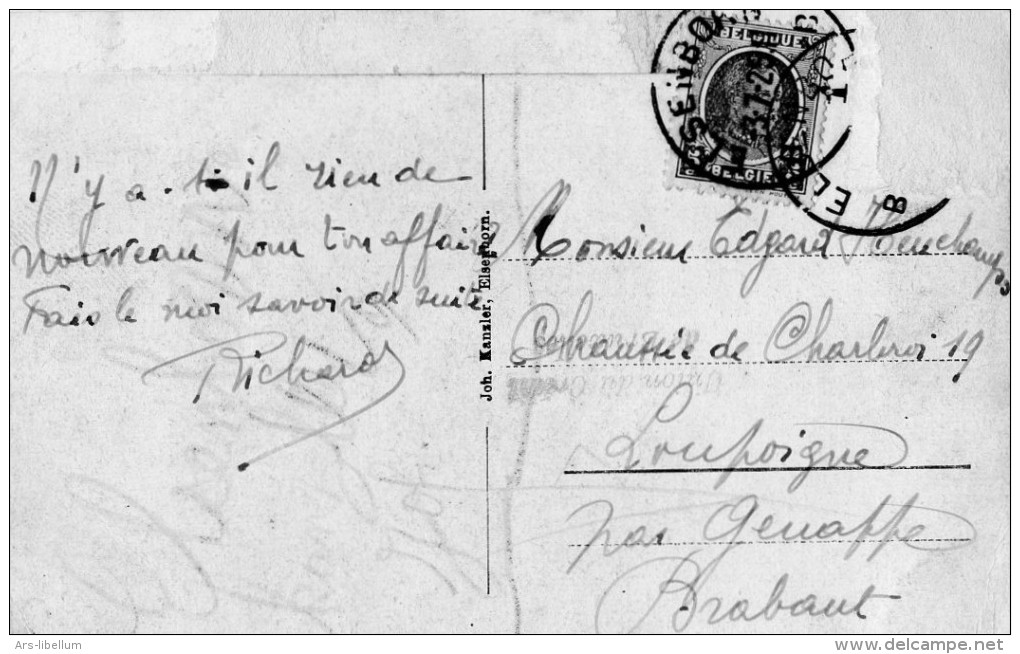 N'y a-t-il rien de
nouveau pour ton affaire
Fais le moi savoir de suite
Richard
Joh. Kanzler, Elsenborn.
BELGIQUE
BELGIË
ELSENBORN
3-7-2
B
Monsieur Edgard Heuchamps
Chaussée de Charleroi 19
Loupoigne
par Genappe
Brabant
Ars-libellum
delcampe.net